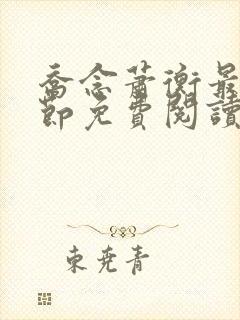 喬念蕭衡最
節免費閱讀
東堯青